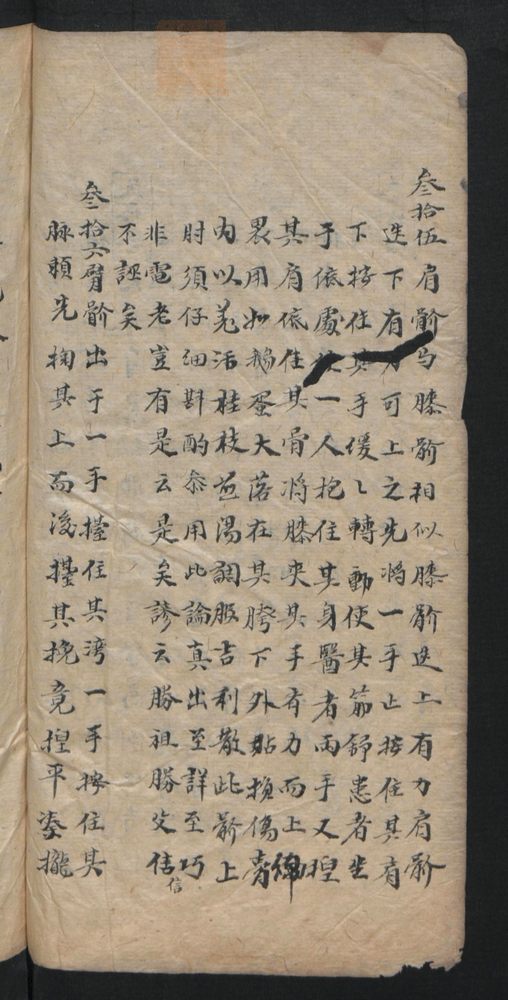 叁拾伍肩骱与膝骱相似膝骱迭上有力肩骱
迭下有力可上之先將一手止按住其肩
下按住其手緩〻轉動使其筋舒患者坐
于依處一人抱住其身醫者兩手又揑
其肩依住其骨將膝夾其手有力而上綿
裹用如鵝蛋大落在其胯下外貼損傷膏
內以羌活桂枝煎湯調服吉利散此骱上
肘須仔細斟酌叅用此論真出至詳至巧
非電老豈有是云是矣諺云勝祖勝父估信
不誣矣
叁拾六臂骱出于一手擡住其湾一手按住其
脉頼先掬其上而後擡其挽竟揑平婆攏